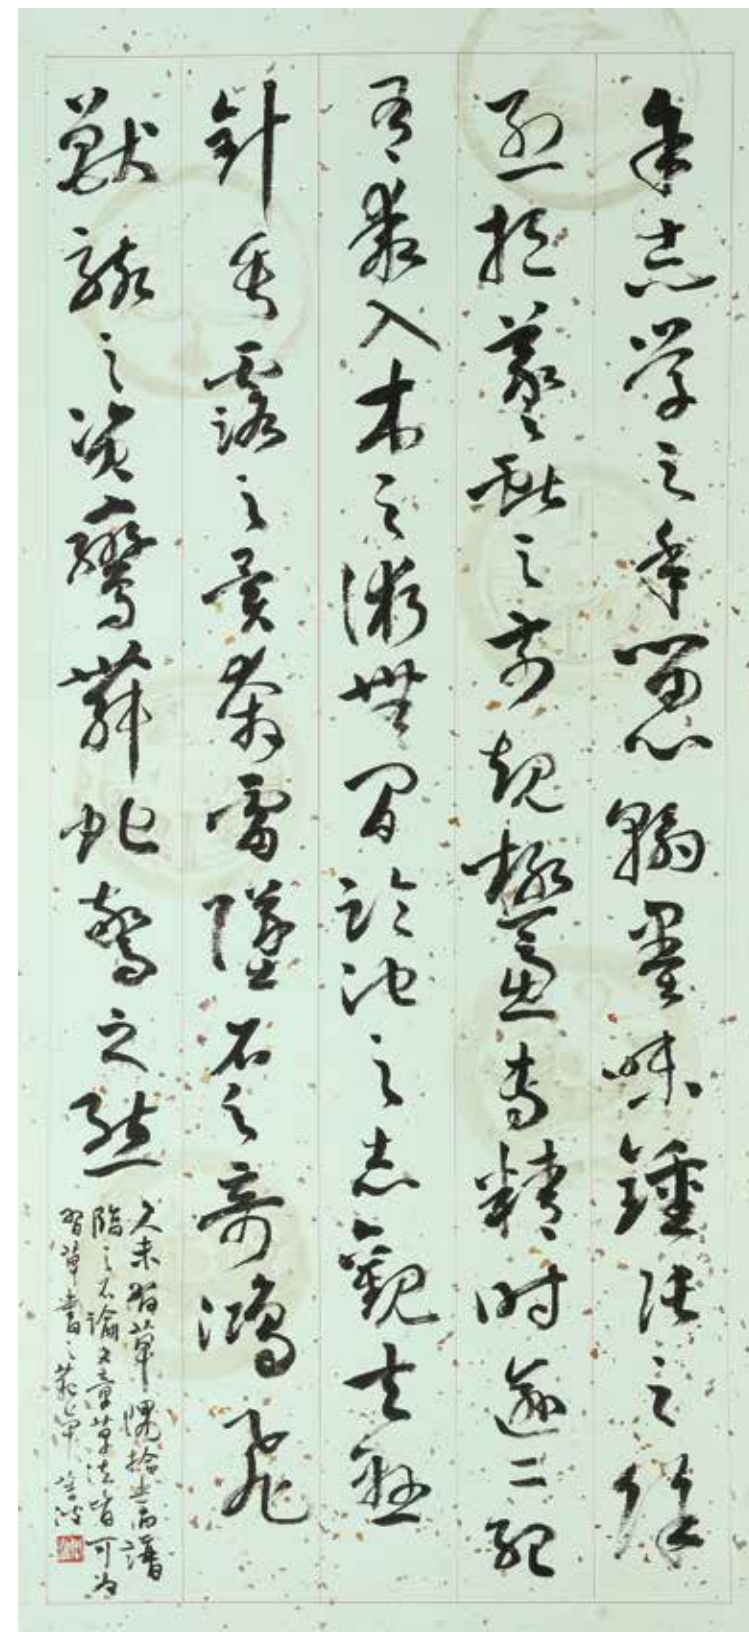 余志學之年留心翰墨味鍾張之餘
烈挹羲獻之前規極慮專精時逾二紀
有乖入木之術無間臨池之志觀夫懸
針垂露之異奔雷墜石之奇鴻飛
獸駭之資鸞舞蛇驚之態
久未習草偶拾書譜
臨之不論文章草法皆可為
習草書之範本